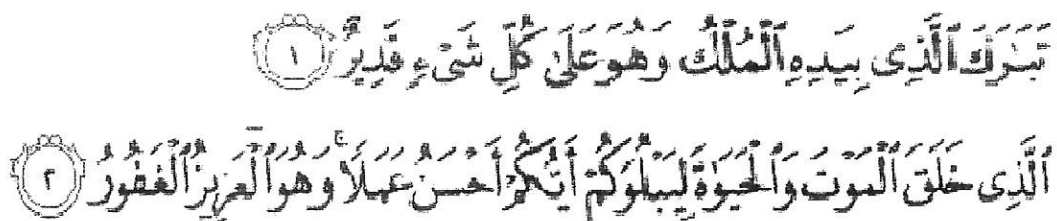 تَبَٰرَكَ ٱلَّذِى بِيَدِهِ ٱلْمُلْكُ وَهُوَ عَلَىٰ كُلِّ شَىْءٍ قَدِيرٌ ١
ٱلَّذِى خَلَقَ ٱلْمَوْتَ وَٱلْحَيَوٰةَ لِيَبْلُوَكُمْ أَيُّكُمْ أَحْسَنُ عَمَلًا ۚ وَهُوَ ٱلْعَزِيزُ ٱلْغَفُورُ ٢